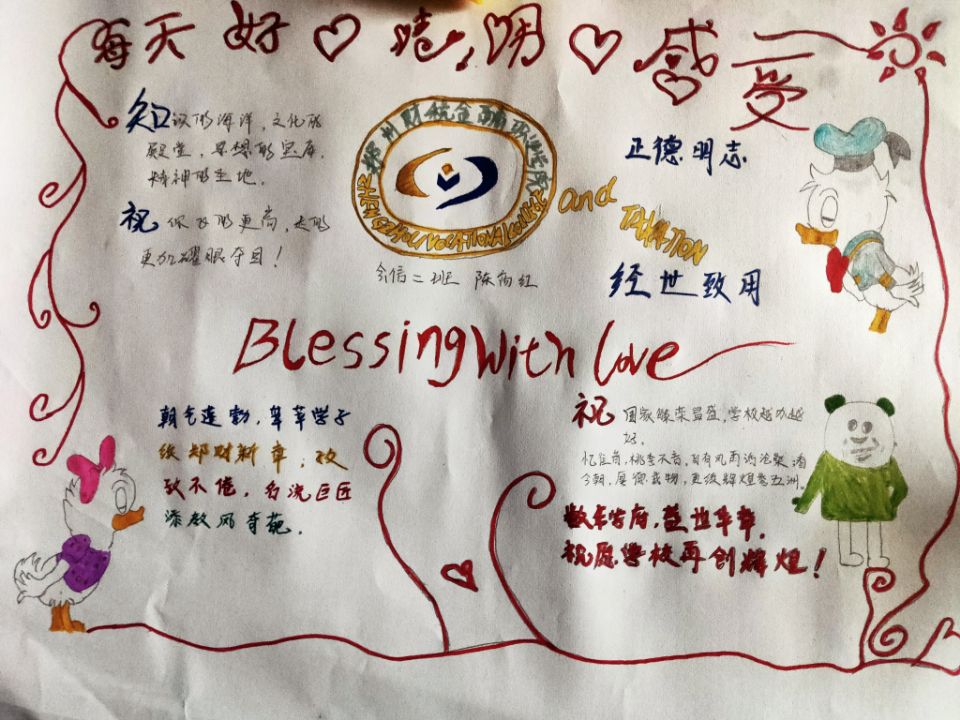 每天好 晴明 感受
知识的海洋,文化的
殿堂,思想的宝库,
精神的圣地。
祝 你飞的更高,走的
更加耀眼夺目!
郑州财税金融职业学院
ZHENGZHOU VOCATIONAL COLLEGE
and
TAXATION
会信二班 陈
正德明志
经世致用
Blessing with love
朝气蓬勃,莘莘学子
续郑财新章;孜
孜不倦,名流巨匠
添教风奇葩.
祝 国家繁荣昌盛,学校越办越
好,
忆往昔,桃李不言,自有风雨话沧桑,看
今朝,厚德载物,更续辉煌誉五洲。
数年学府,盖世华章,
祝愿学校再创辉煌!